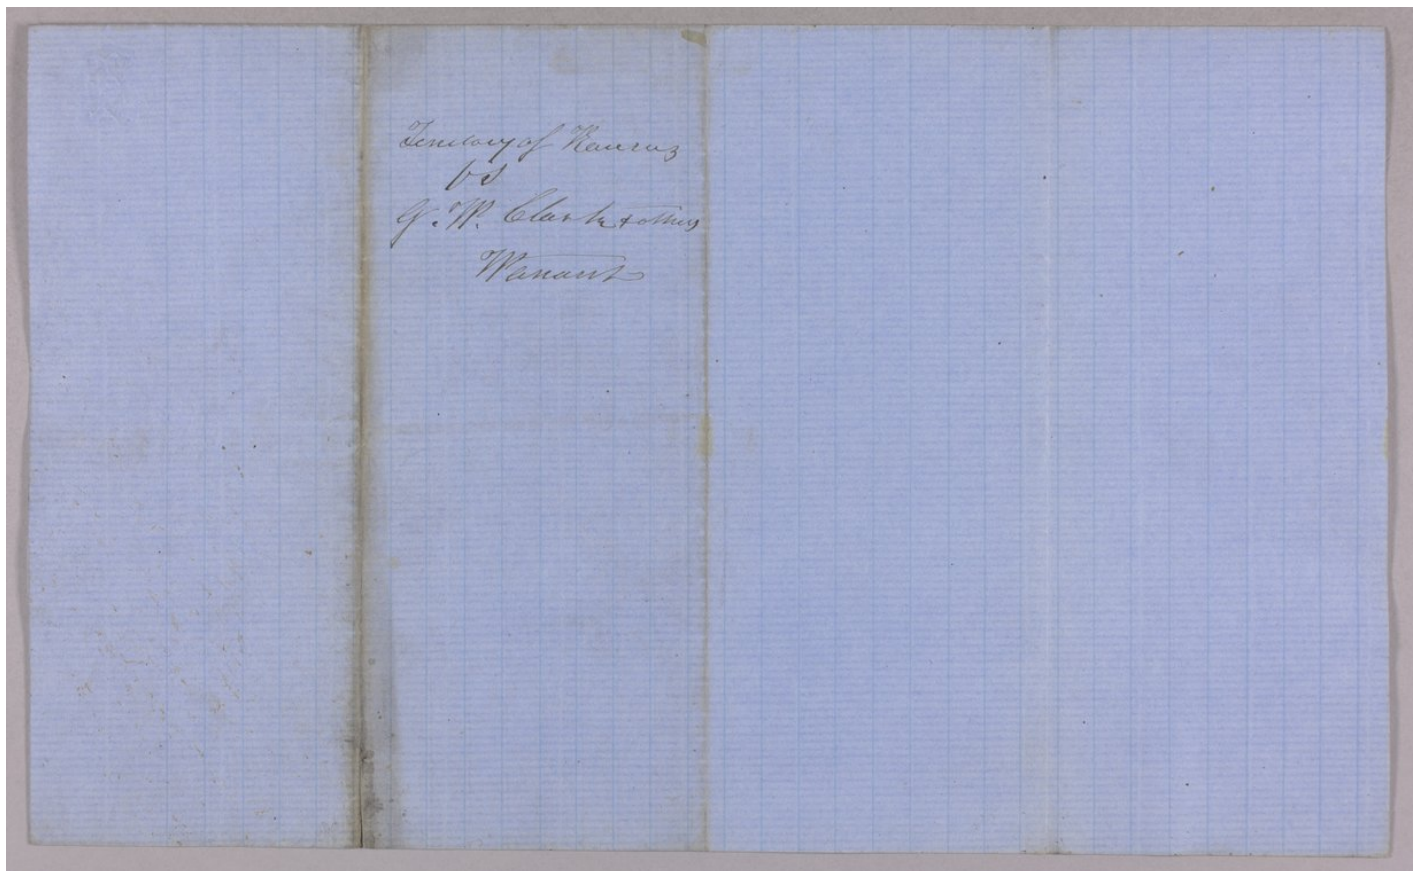 Territory of Kansas
vs
G. W. Clarke & others
Warrant